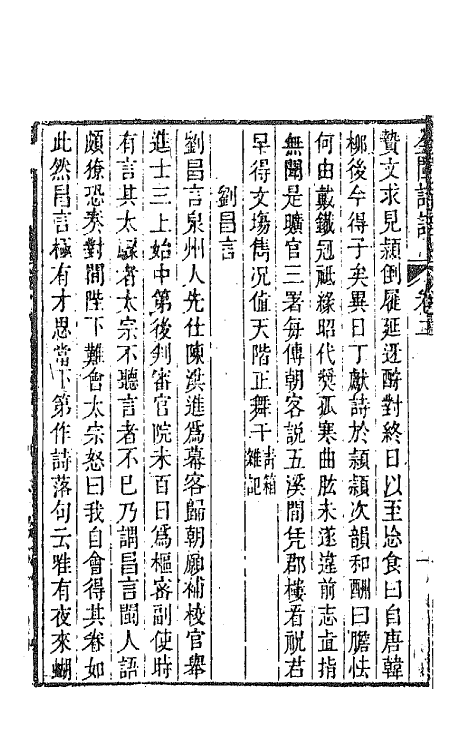 全閩詩話 卷二
贄文求見頴倒屣延迓酧對終日以至㤀食曰自唐韓
柳後今得子矣異日丁獻詩於頴頴次韻和酬曰膽怯
何由戴鐵冠祇緣昭代奬孤寒曲肱未遂違前志直指
無聞是曠官三署每傳朝客説五溪閒凭郡樓看祝君
早得文塲雋况值天階正舞干青箱
雜記
劉昌言
劉昌言泉州人先仕陳洪進爲幕客歸朝願補校官舉
進士三上始中第後判審官院未百日爲樞密副使時
有言其太驟者太宗不聽言者不已乃謂昌言閩人語
頗獠恐奏對間陛下難會太宗怒曰我自會得其眷如
此然昌言極有才思當下第作詩落句云唯有夜來蝴